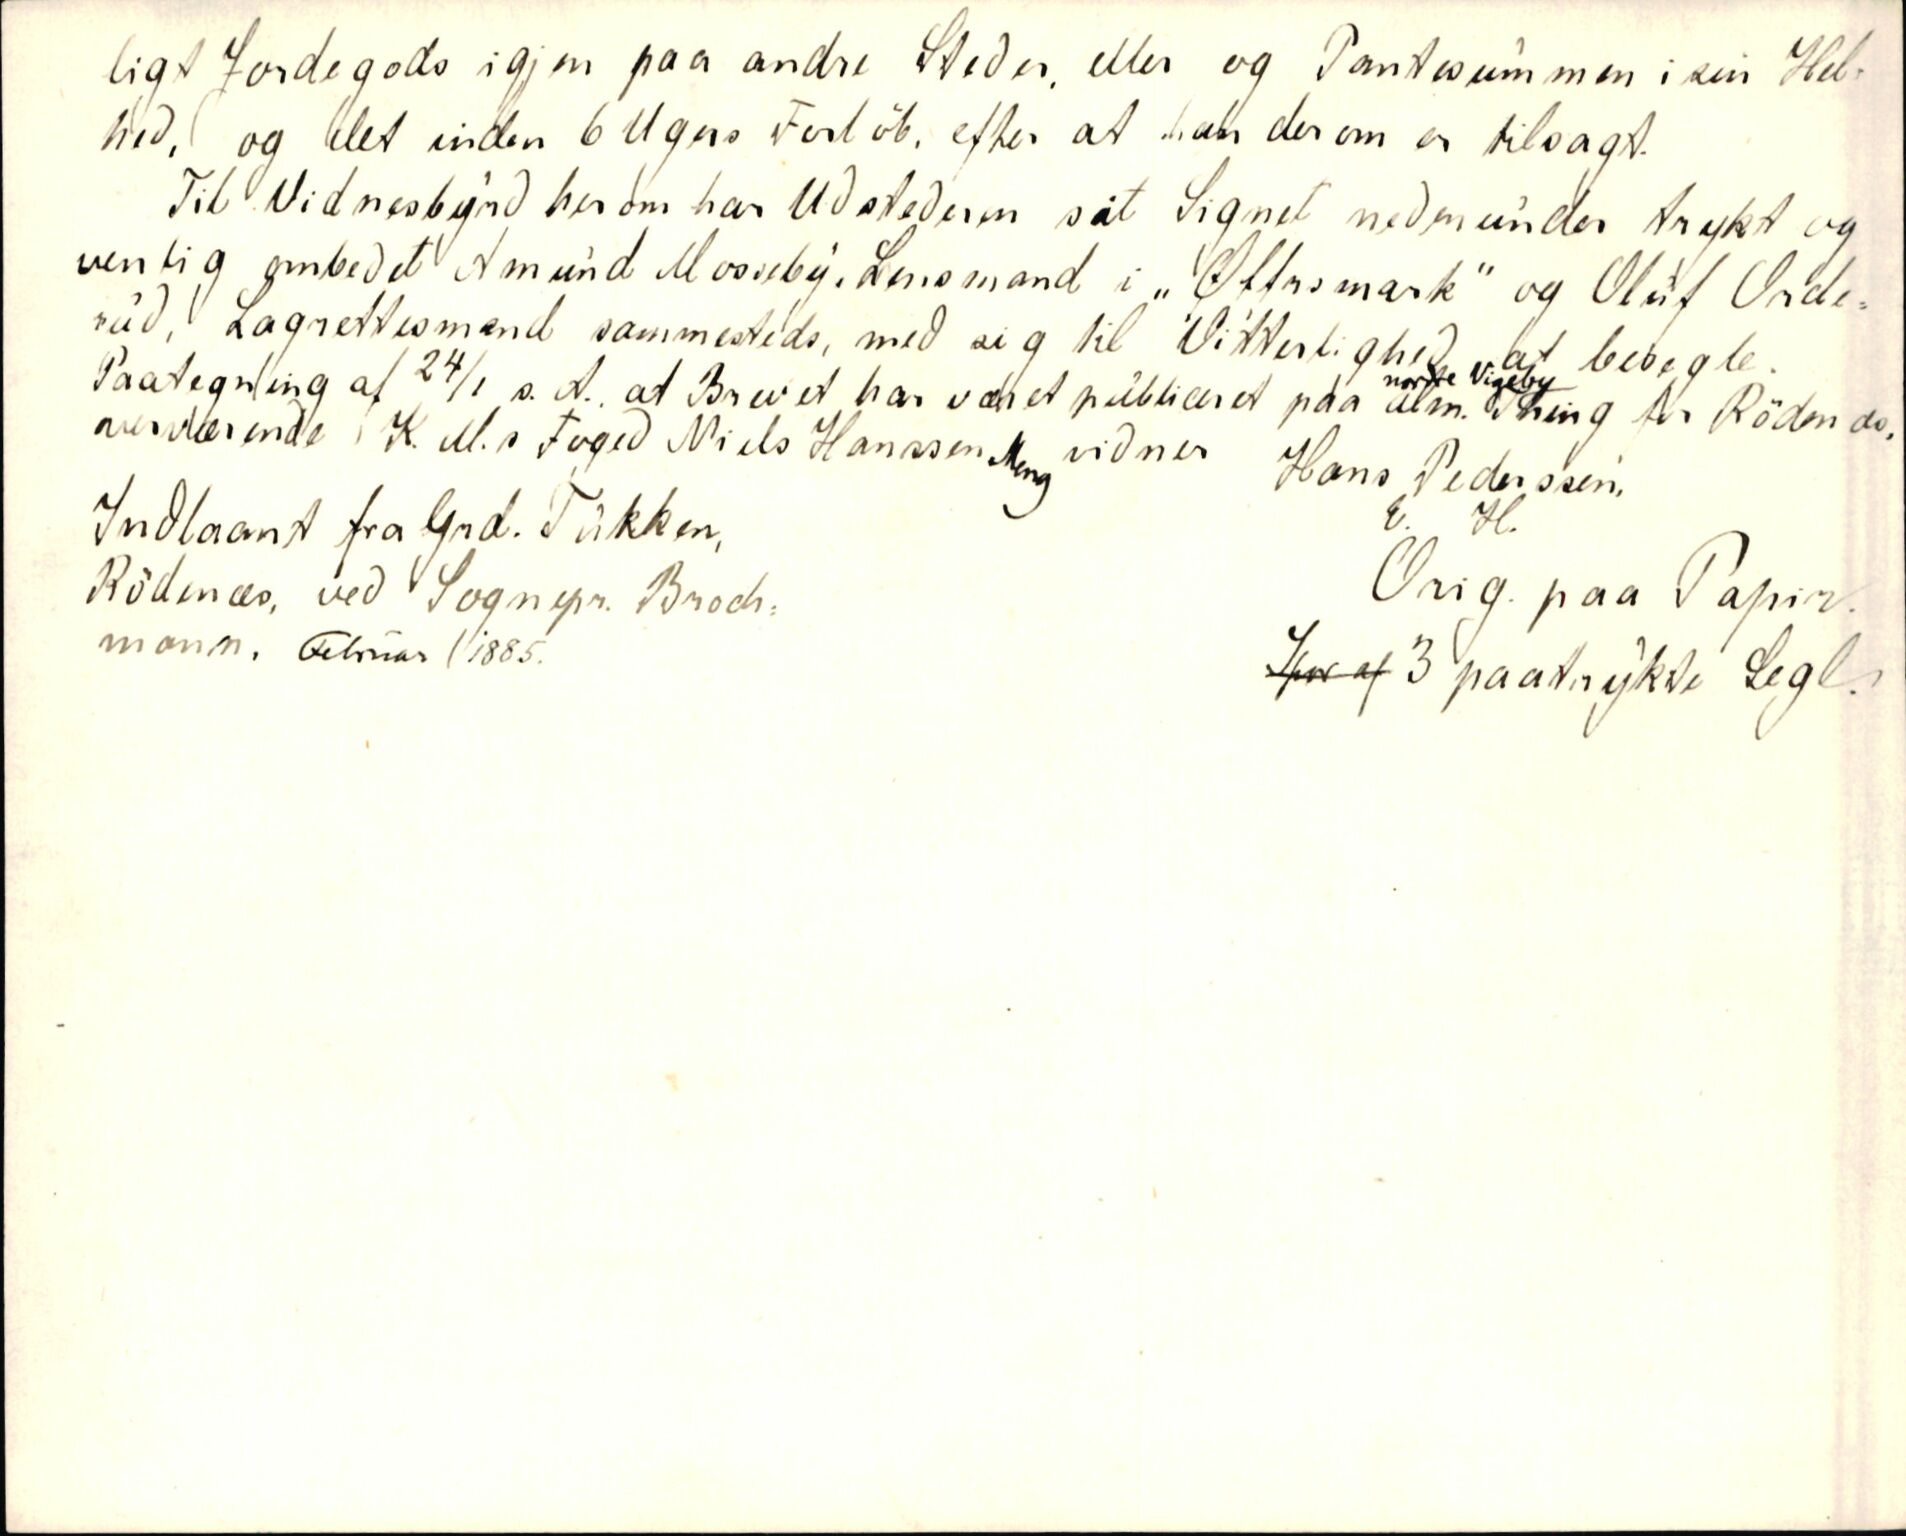 ligt Jordegods igjen paa andre Steder, eller og Pantesummen i sin Hel-
hed, og det inden 6 Ugers Forlöb, efter at han derom er tilsagt.
Til Vidnesbyrd herom har Udstederen sat Signet nedenunder trykt og
venlig ombedet Amund Mosseby, Lensmand i „Øffrsmark" og Oluf Orde-
rud, Lagrettesmand sammesteds, med sig til Vitterlighed at besegle.
Paategning af 24/1 s. A. at Brevet har været publiceret paa alm. Thing for Rödenæs,
nordre Vigeby
nerværende K. M.s Foged Niels Hanssen Meng vidner Hans Pederssen.
E. H.
Indlaant fra Grd. Tukken,
Rödenæs, ved Sognepr. Broch-
mann. Februar 1885.
Orig. paa Papir.
Spor af 3 paatrykte Segl.